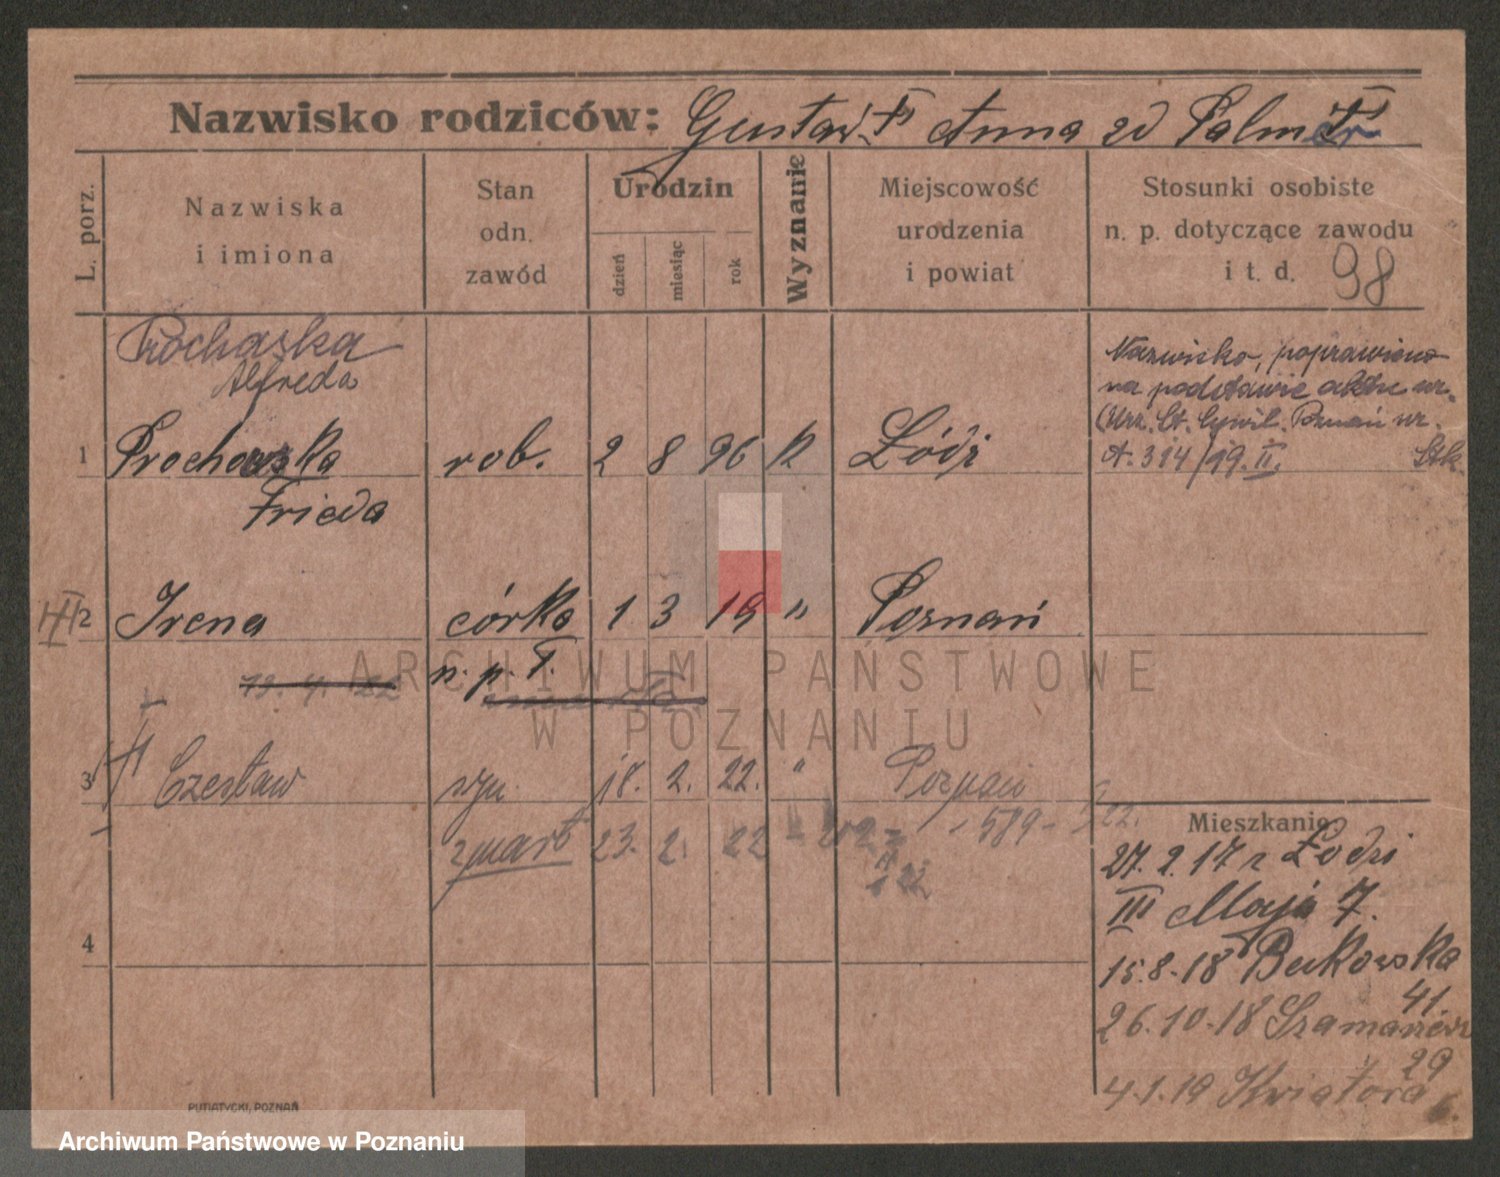 Nazwisko rodziców: Gustaw † Anna zd Palm †
L. porz.
Nazwiska i imiona
Stan odn. zawód
Urodzin
dzień
miesiąc
rok
Wyznanie
Miejscowość urodzenia i powiat
Stosunki osobiste n. p. dotyczące zawodu i t. d. 98
Prochaska
Alfreda
Nazwisko, poprawiono
na podstawie aktu ur.
(Urz. St. Cywil. Poznań nr.
A. 314/19. II. Stk.
1 Prochowska rob. 2 8 96 k Łódź
Frieda
2 Irena córka 1 3 19 " Poznań
n. p. T.
3 Czesław syn 18. 2. 22. " Poznań
589
zmarł 23. 2. 22
4
Mieszkanie
27. 2. 17 z Łodzi
III Maja 7.
15.8.18 Bukowska
41.
26.10.18
29
4.1.19 Kwiatowa
6.
PUTIATYCKI, POZNAŃ
ARCHIWUM PAŃSTWOWE
W POZNANIU
Archiwum Państwowe w Poznaniu